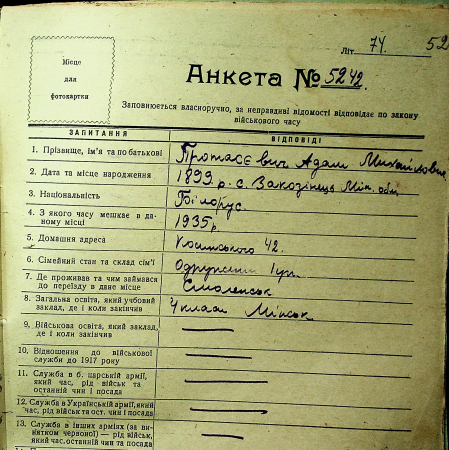 Літ. 74. 52
Місце
для
фотокартки
Анкета № 5242.
Заповнюється власноручно, за неправдиві відомості відповідає по закону
військового часу
ЗАПИТАННЯ ВІДПОВІДІ
1. Прізвище, ім'я та по батькові Протасєвич Адам Михайлович
2. Дата та місце народження 1899 р. с. Мін. обл.
3. Національність Білорус
4. З якого часу мешкає в да-
ному місці 1935 р.
5. Домашня адреса 42.
6. Сімейний стан та склад сім'ї Одружений 1
7. Де проживав та чим займався
до переїзду в дане місце Смоленськ
8. Загальна освіта, який учбовий
заклад, де і коли закінчив 4 класи Мінськ
9. Військова освіта, який заклад,
де і коли закінчив
10. Відношення до військової
служби до 1917 року
11. Служба в б. царській армії,
який час, рід військ та
останній чин і посада
12. Служба в Українській армії, який
час, рід військ та ост. чин і посада
13. Служба в інших арміях (за ви-
нятком червоної) — рід військ,
який час, останній чин та посада